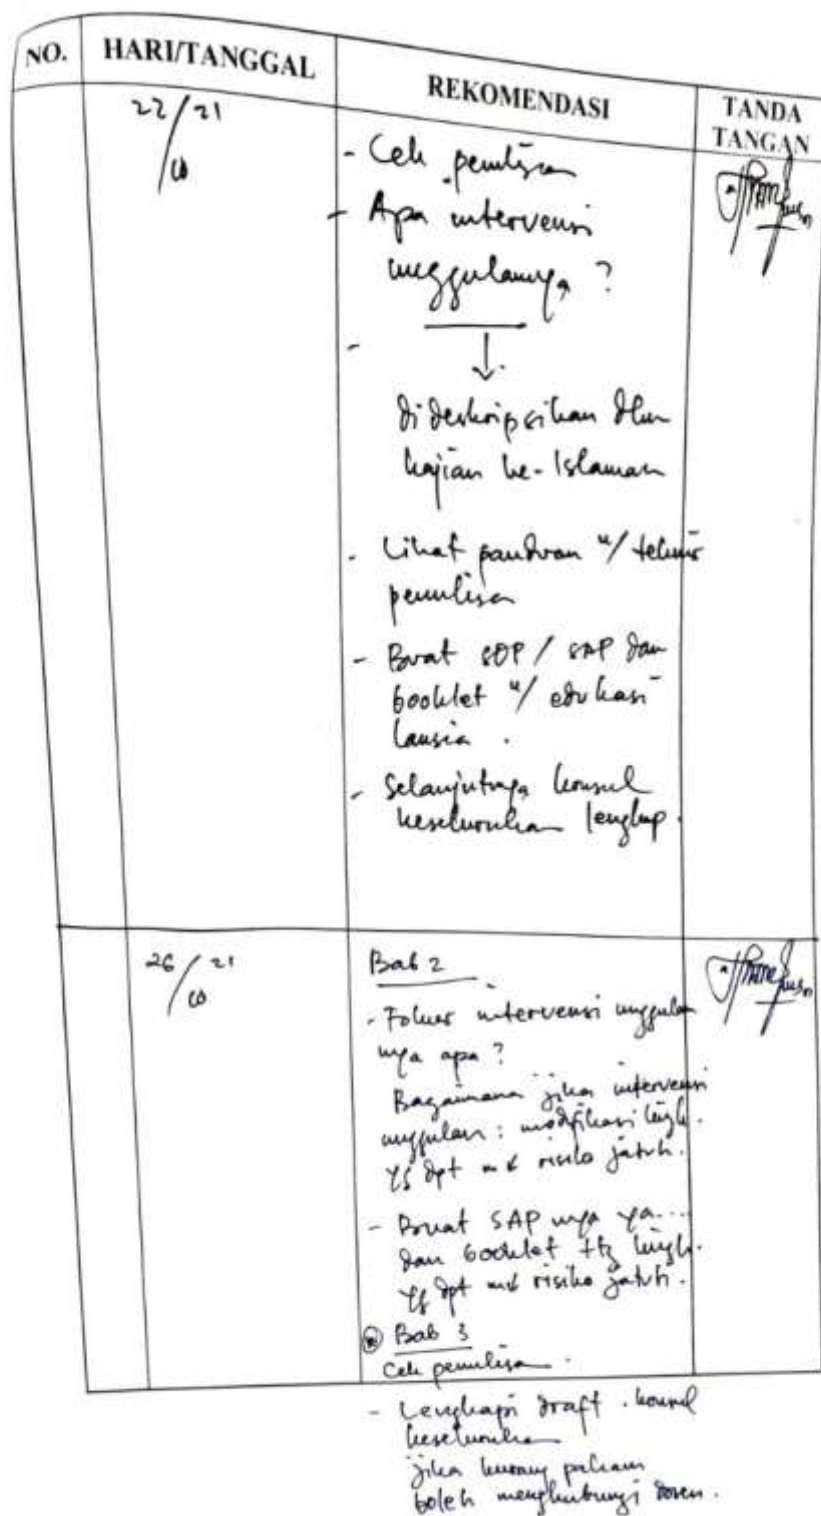 NO.
HARI/TANGGAL
REKOMENDASI
TANDA
TANGAN
22/21
10
- Cek penulisan
- Apa intervensi
unggulannya ?
-
↓
dideskripsikan dlm
kajian ke-Islaman
- Lihat panduan u/ teknis
penulisan
- Buat SOP / SAP dan
booklet u/ edukasi
lansia .
- Selanjutnya konsul
keseluruhan lengkap .
26/21
10
Bab 2
- Fokus intervensi unggulan
nya apa ?
Bagaimana jika intervensi
unggulan : modifikasi lingk.
yg dpt risiko jatuh.
- Buat SAP nya ya...
dan booklet ttg lingk.
yg dpt risiko jatuh.
Bab 3
Cek penulisan .
- Lengkapi draft . konsul
keseluruhan
jika kurang paham
boleh menghubungi dosen .